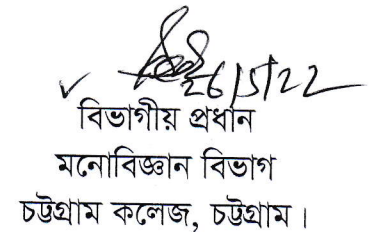 26/5/22
বিভাগীয় প্রধান
মনোবিজ্ঞান বিভাগ
চট্টগ্রাম কলেজ, চট্টগ্রাম।